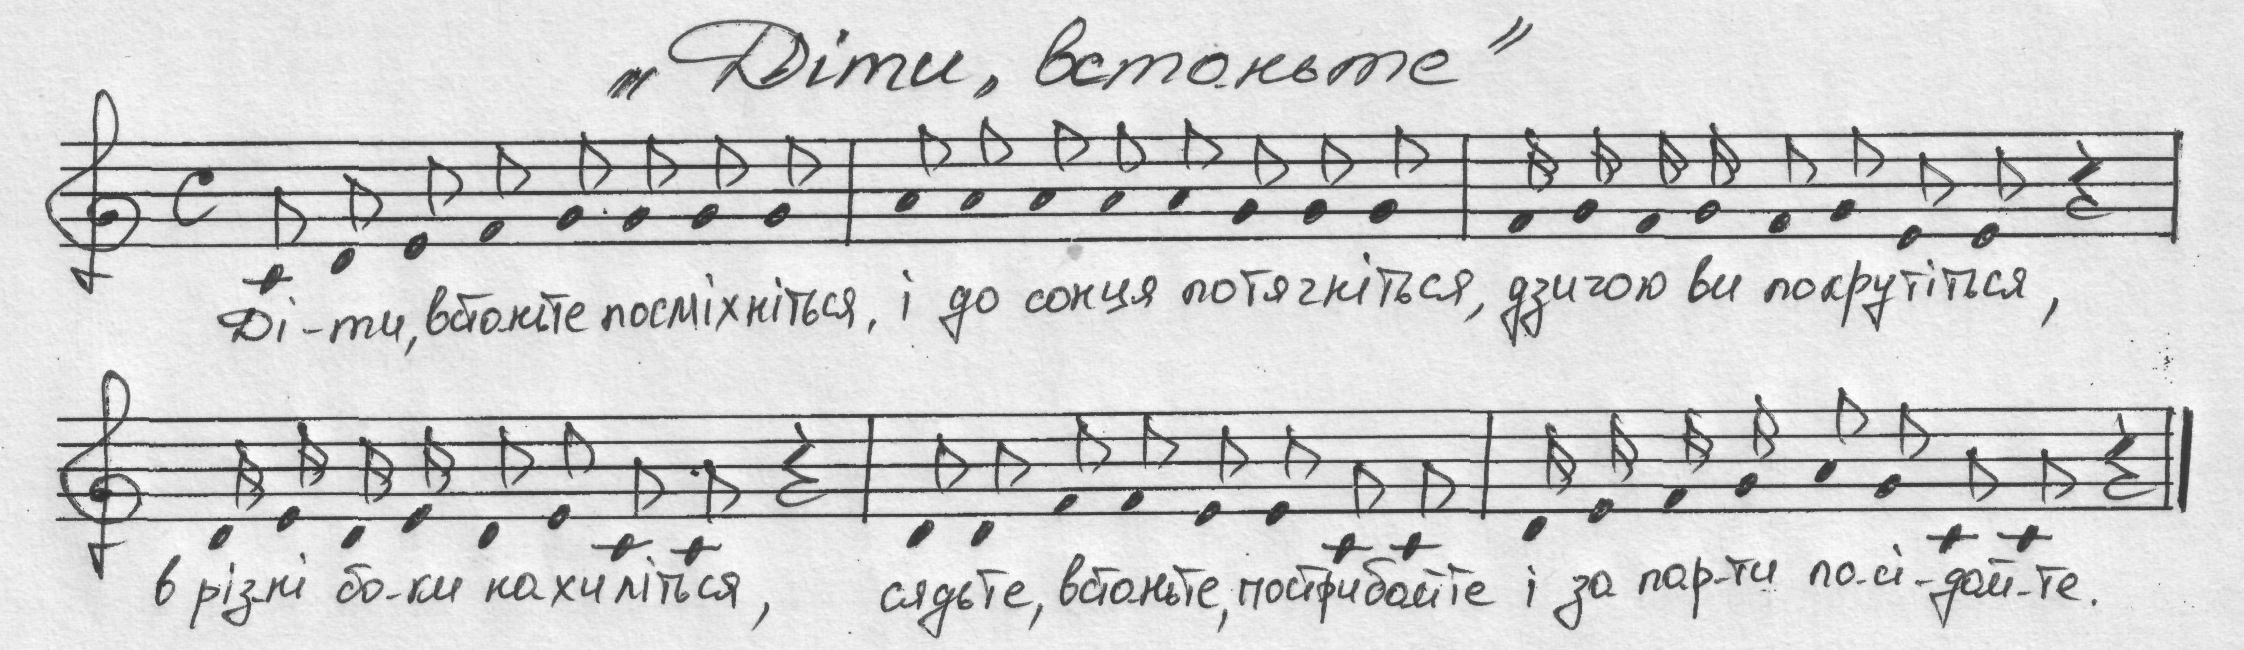 „Діти, встаньте”
Ді-ти, встаньте посміхніться, і до сонця потягніться, дзигою ви покрутіться,
в різ-ні бо-ки нахиліться, сядьте, встаньте, пострибайте і за пар-ти по-сі-дай-те.